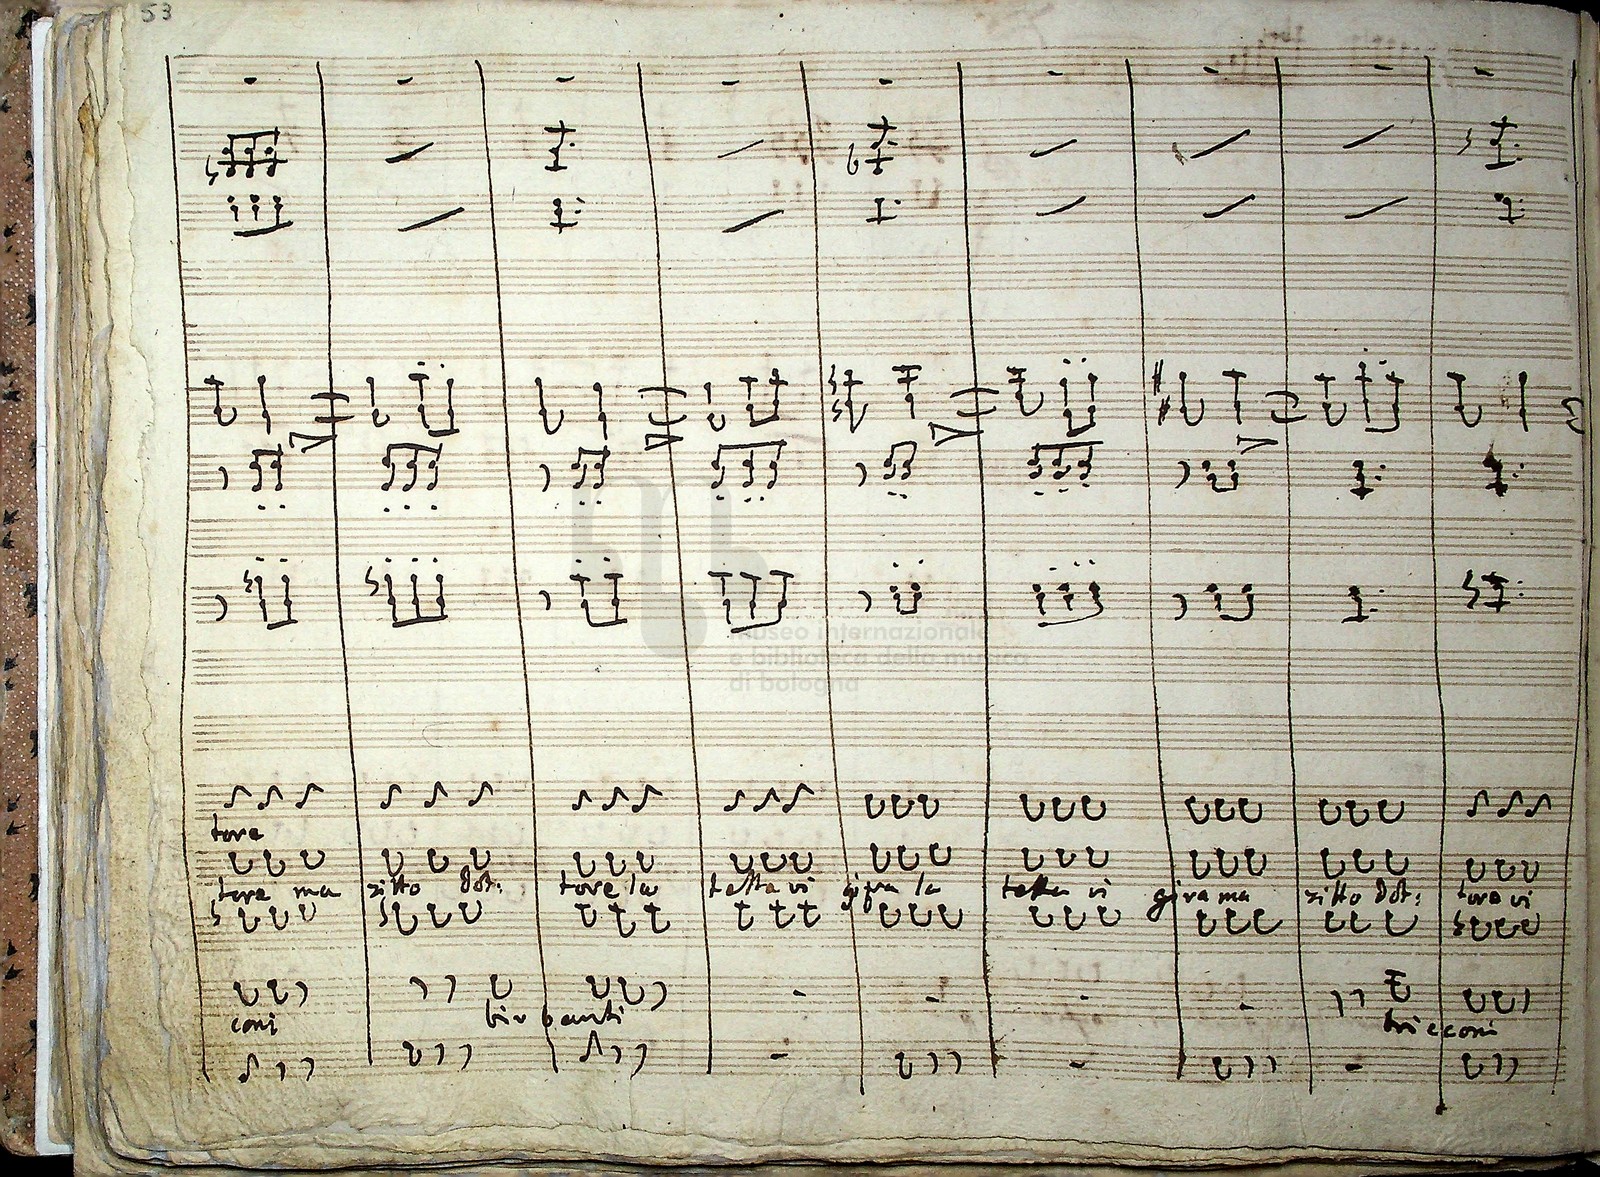 53
museo internazionale
e biblioteca della musica
di bologna
tore
tore ma zitto Dot: tore la testa vi gira la testa vi gira ma zitto Dot: tore vi
coni birbanti bricconi